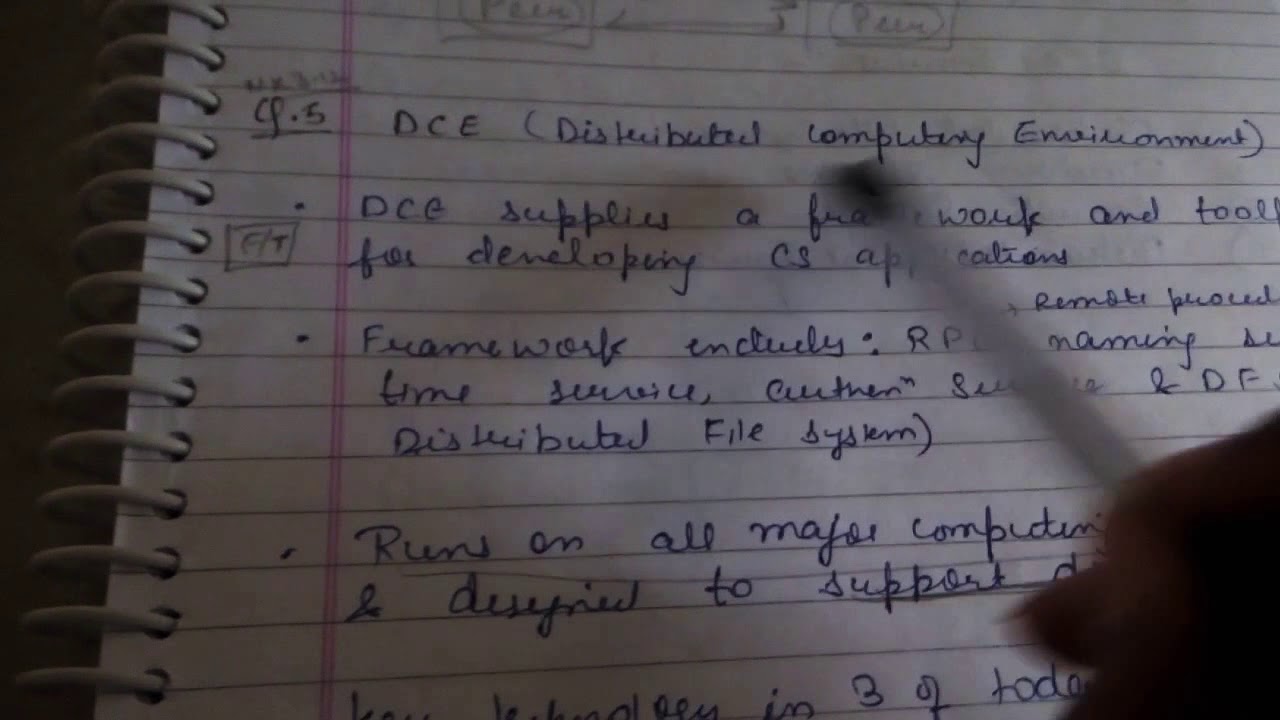 (Peer) (Peer)
Q.5 DCE (Distributed Computing Environment)
• DCE supplies a framework and tool
F/T for developing CS applications
Remote proced
• Framework includes: RPC naming se
time service, authenⁿ Service & DF
Distributed File System)
• Runs on all major computin
& designed to support d
key technology in 3 of toda